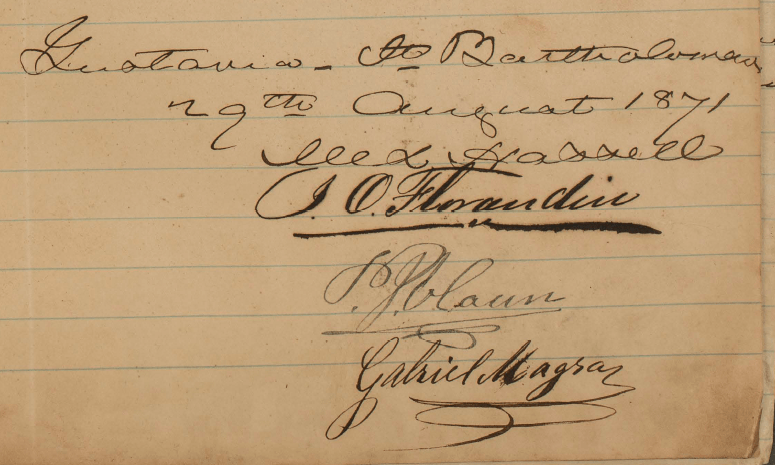 Gustavia - St Bartholomew
29th August 1871
Alex Hassell
J. O. Florandin
Gabriel Magras